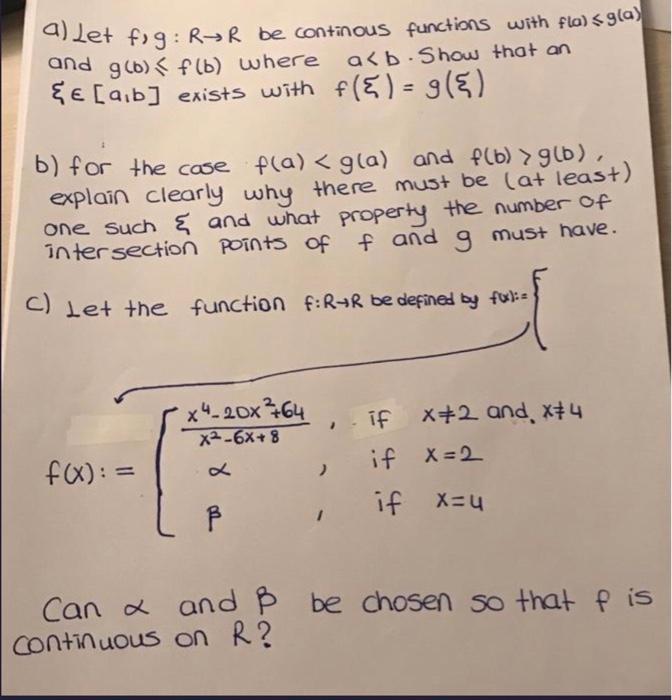 a) Let f,g : R→R be continous functions with f(a) ≤ g(a)
and g(b) ≤ f(b) where a<b. Show that an
ξ ∈ [a,b] exists with f(ξ) = g(ξ)
b) for the case f(a) < g(a) and f(b) > g(b),
explain clearly why there must be (at least)
one such ξ and what property the number of
intersection points of f and g must have.
c) Let the function f:R→R be defined by f(x):= {
x⁴-20x²+64 / x²-6x+8 , if x≠2 and, x≠4
f(x) := α , if x=2
β , if x=4
Can α and β be chosen so that f is
continuous on R?